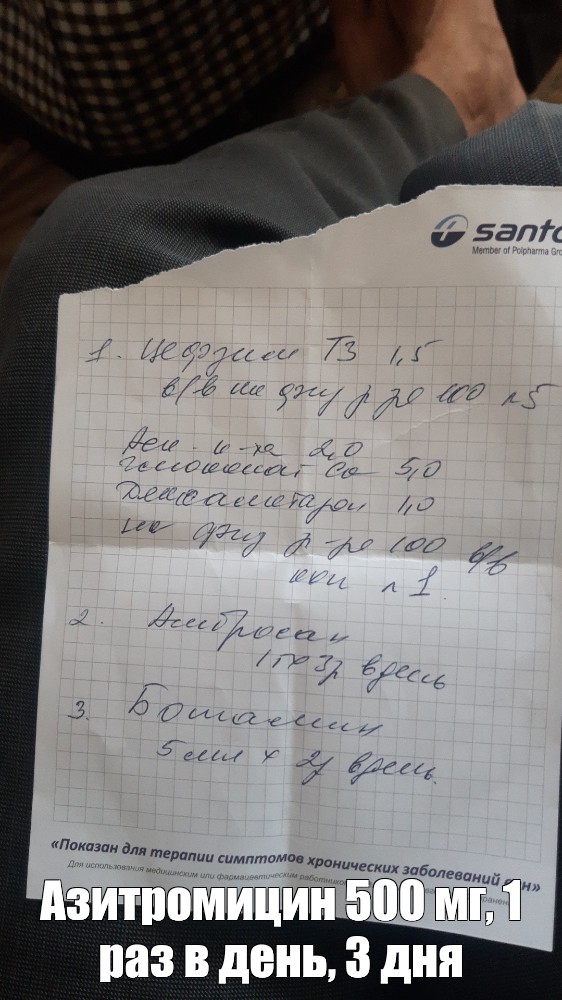 santo
Member of Polpharma Gro
1. Цефзим ТЗ 1,5
в/в на физ р-ре 100 №5
Аск к-та 2,0
глюконат Са 5,0
Дексаметазон 1,0
на физ р-ре 100 в/в
№1
2. Амбросан
1т х 3р в день
3.
5 мл х 2р в день.
«Показан для терапии симптомов хронических заболеваний
Для использования медицинским или фармацевтическим
Азитромицин 500 мг, 1
раз в день, 3 дня